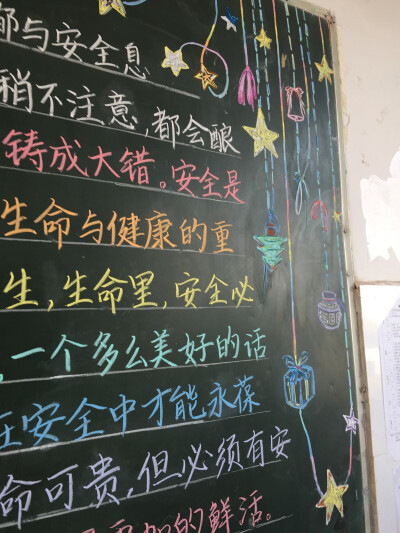 都与安全息
稍不注意,都会酿
铸成大错。安全是
生命与健康的重
生,生命里,安全必
,一个多么美好的话
在安全中才能永葆
命可贵,但必须有安
加的鲜活。